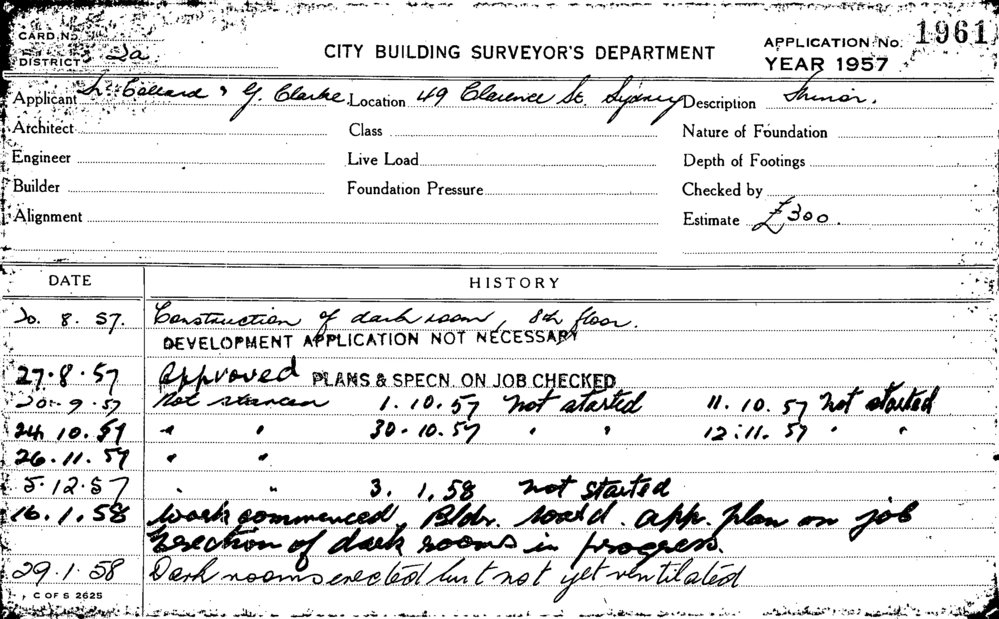 CARD No.
CITY BUILDING SURVEYOR'S DEPARTMENT
APPLICATION No. 1961
DISTRICT 2a
YEAR 1957
Applicant & G. Clarke Location 49 Clarence St. Sydney Description
Architect Class Nature of Foundation
Engineer Live Load Depth of Footings
Builder Foundation Pressure Checked by
Alignment Estimate £300.
DATE HISTORY
20. 8. 57. Construction of dark room, 8th floor.
DEVELOPMENT APPLICATION NOT NECESSARY
27.8.57 approved PLANS & SPECN. ON JOB CHECKED
9.57 Not started 1.10.57 Not started 11.10.57 Not started
24 10.57 " " 30.10.57 " " 12.11.57 " "
26.11.57 " "
5.12.57 " " 3.1.58 Not started
16.1.58 Work commenced, Bldr. app. plan on job
Erection of dark rooms in progress.
29.1.58 Dark rooms erected but not yet ventilated
C OF S 2625